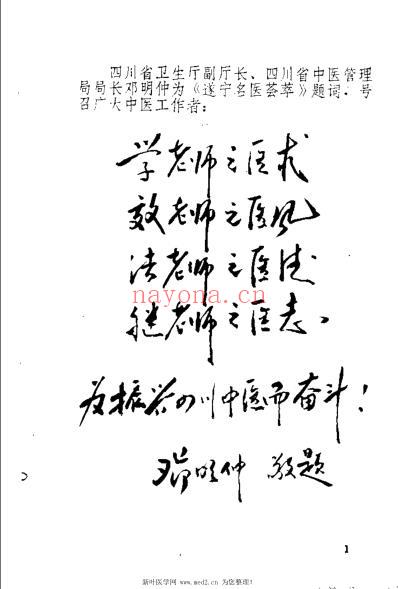 四川省卫生厅副厅长、四川省中医管理
局局长邓明仲为《遂宁名医荟萃》题词，号
召广大中医工作者：
学老师之医术
效老师之医风
法老师之医德
继老师之医志。
为振兴四川中医而奋斗！
邓明仲 敬题
nayona.cn
1
新叶医学网 www.med2.cn 为您整理！